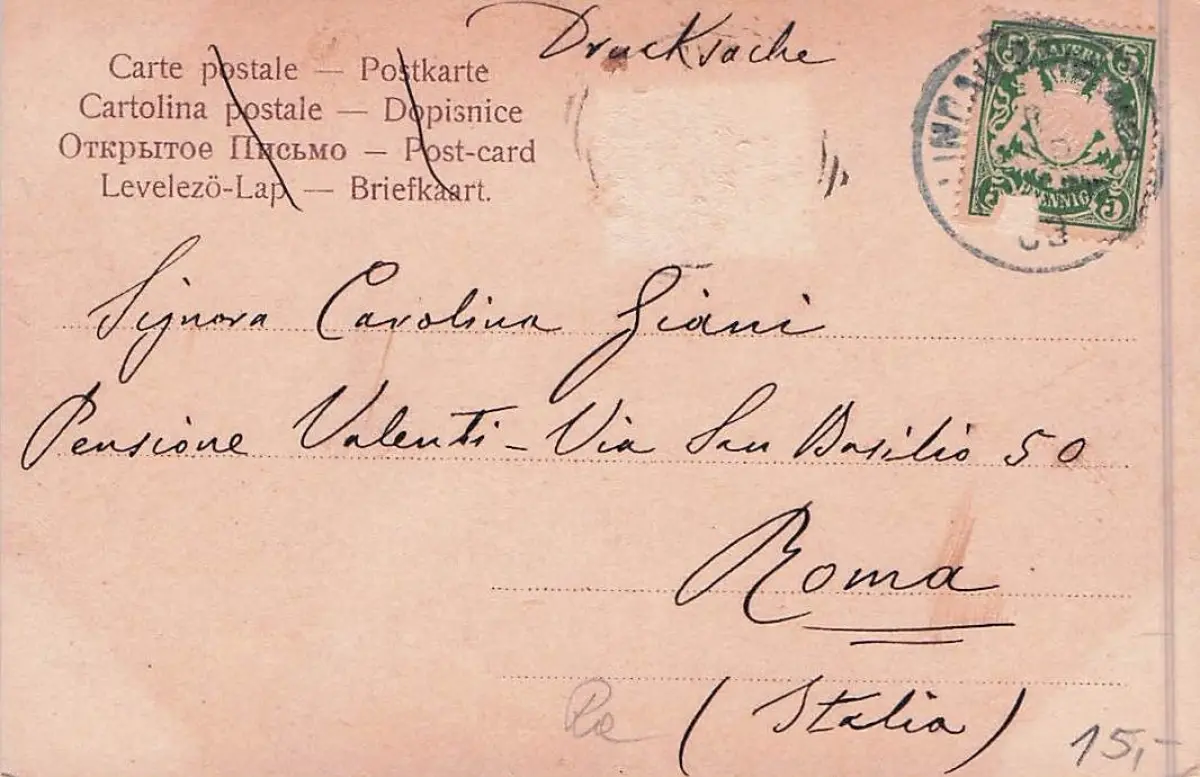 Drucksache
Carte postale — Postkarte
Cartolina postale — Dopisnice
Открытое Письмо — Post-card
Levelező-Lap — Briefkaart.
5 BAYERN 5
PFENNIG 5
03
Signora Carolina Giani
Pensione Valenti - Via San Basilio 50
Roma
(Italia)
15,-